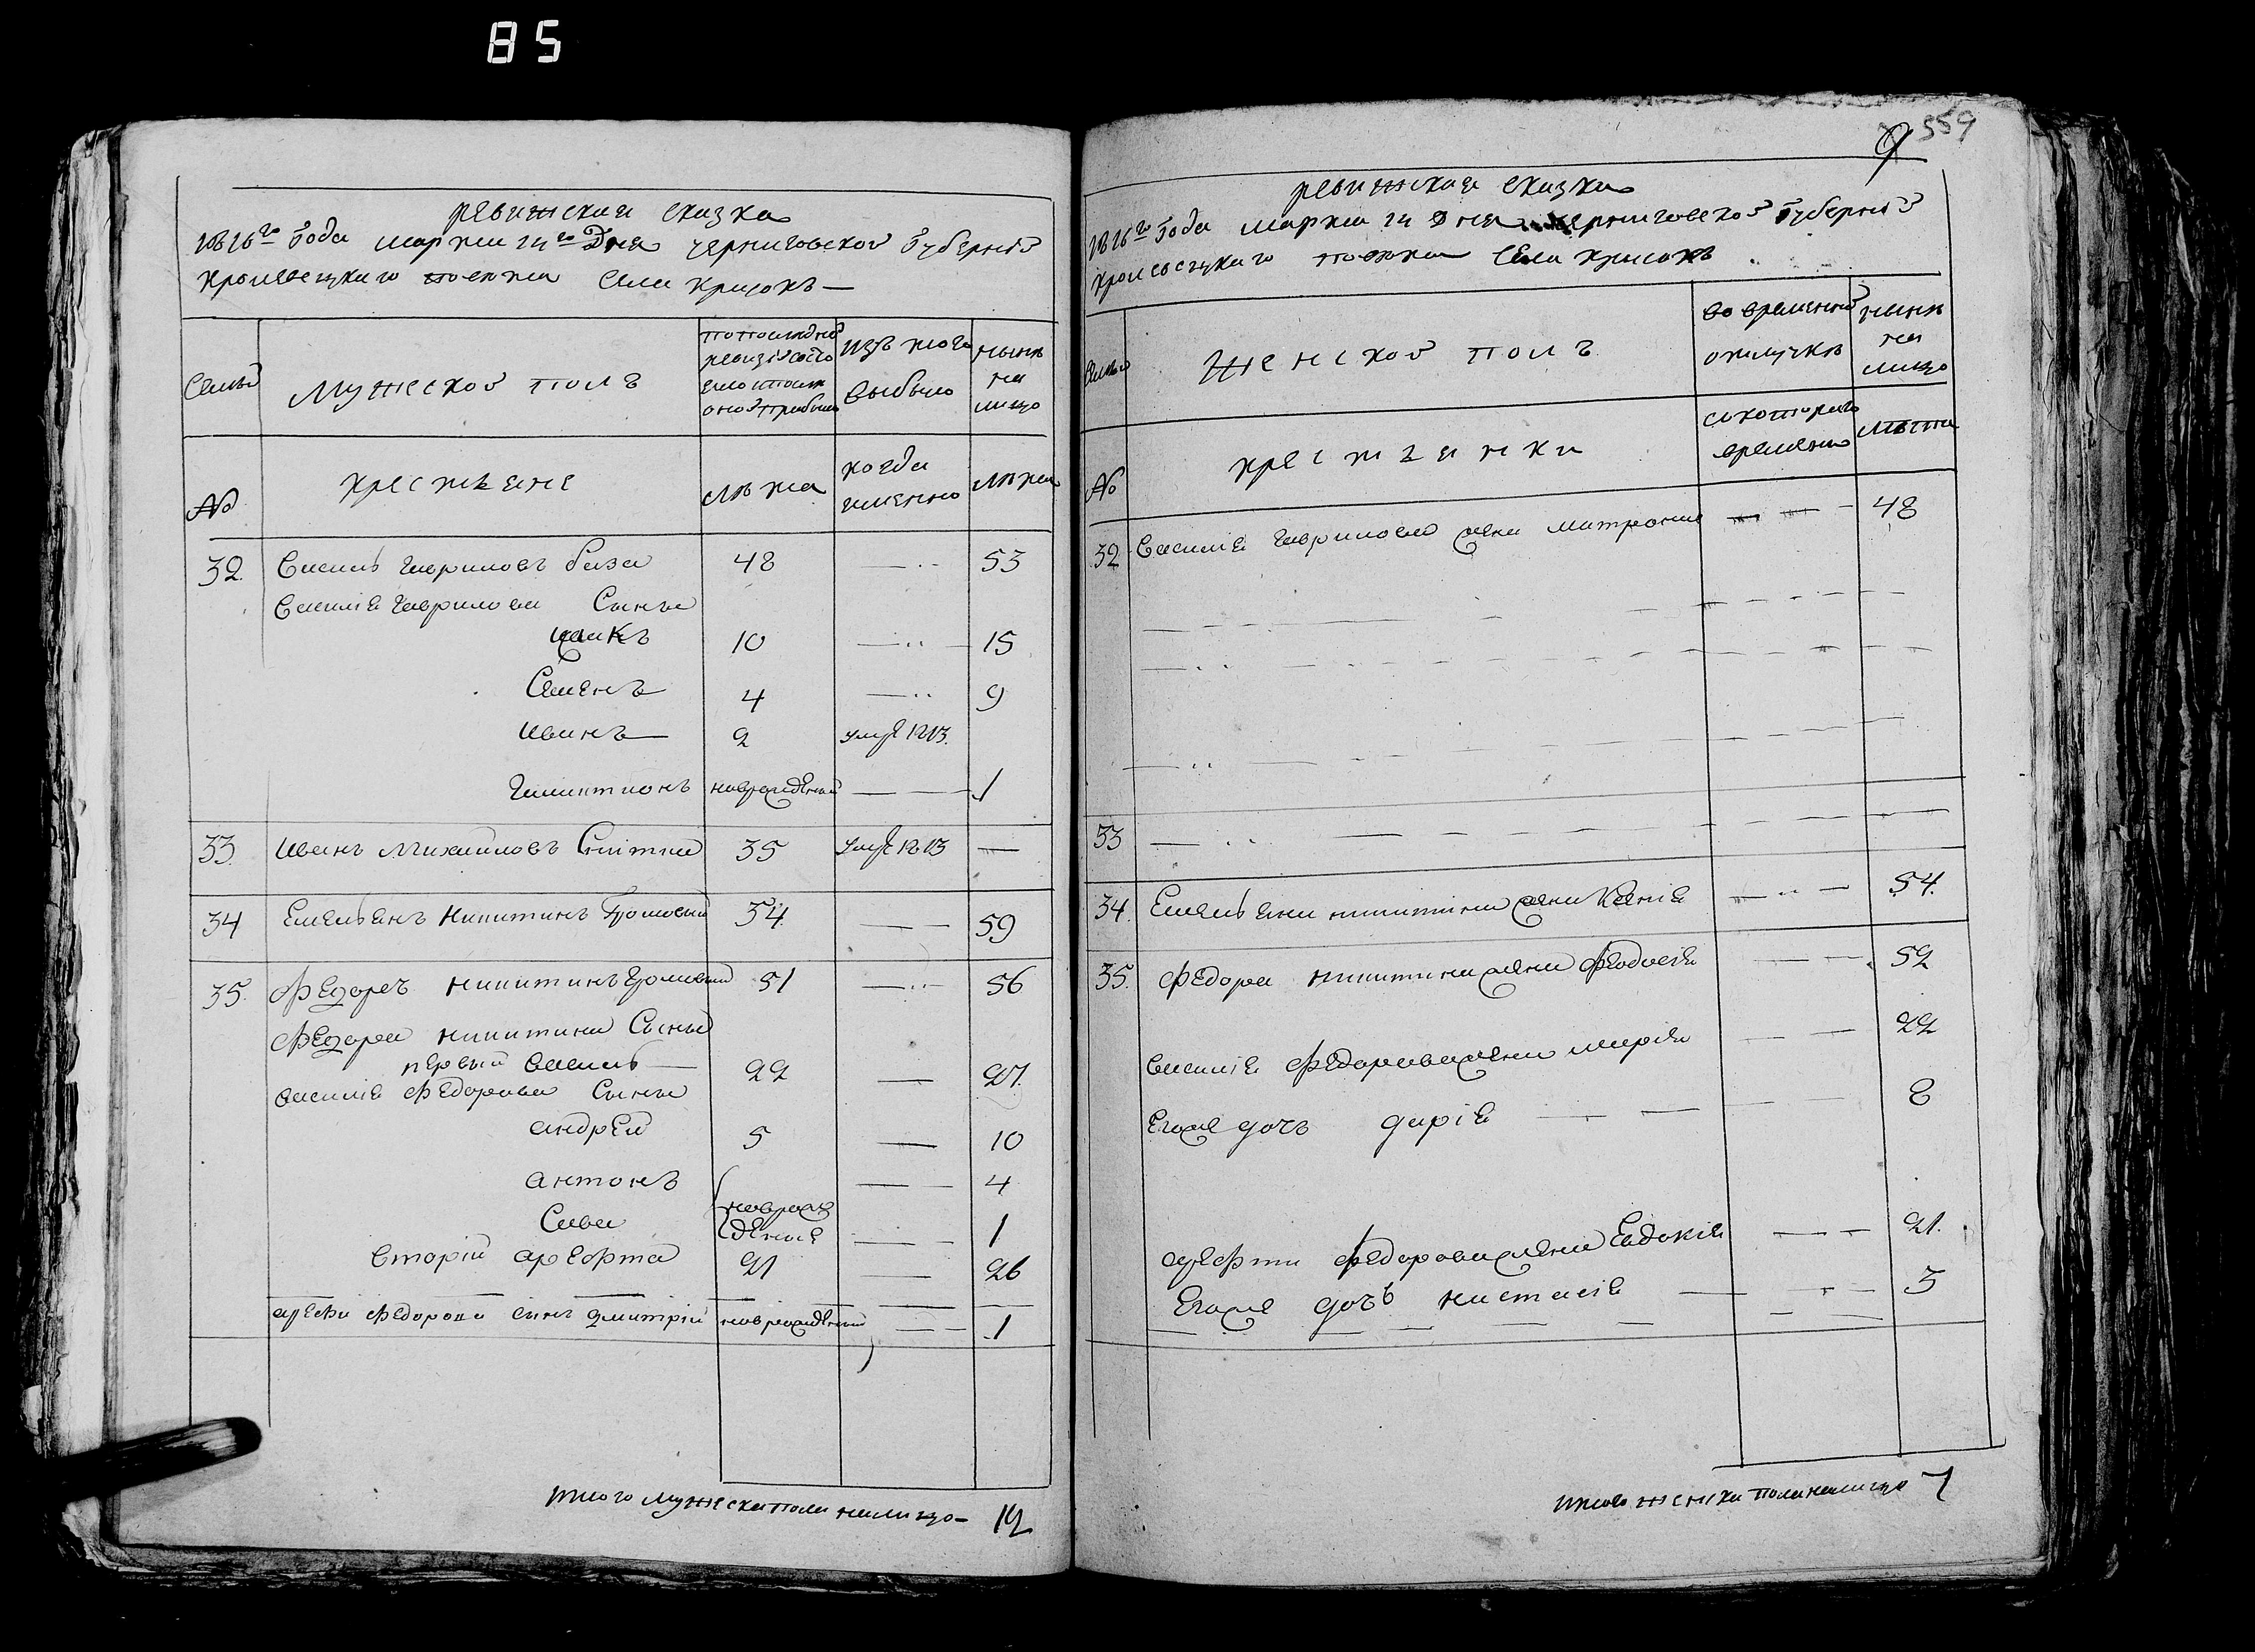 85
ревижская сказка
1816го года марта 14го Дня черниговской губерніи
кролевецкаго повета села крисокъ—
Семьи
Мужеской полъ
по последней ревизіи состояло и после оной прибыло
изъ того выбыло
ныне на лицо
№
крестьяне
лета
когда именно
лета
32. Василь гавриловъ 48 — 53
Василія гаврилова Сыны
10 — 15
Семенъ 4 — 9
Иванъ 2 умре 1813.
новорожденный — 1
33. Иванъ Михайловъ 35 умре 1813 —
34 Емельянъ Никитинъ 54. — 59
35. Федоръ Никитинъ 51 — 56
Федора Никитина Сыны
первый Василь — 22 — 27.
Василія Федорова Сыны
андрей 5 — 10
антонъ — 4
новорожденные
Сава — 1
вторій арефта 21 — 26
арефи Федорова сынъ дмитрій новорожденный — 1
итого мужеска пола налицо — 12
9 559
ревижская сказка
1816го года марта 14 Дня черниговской губерніи
кролевецкаго повета Села крисокъ
Семьи
Женской полъ
во временной отлучке
ныне на лицо
№
крестьянки
с котораго времени
лета
32 Василія гаврилова жена — 48
33 —
34. Емельяна никитина жена Ксенія — 54.
35. Федора никитина жена Феодосія — 52
Василія Федорова жена марія — 22
Егоже дочь дарія — 8
арефти Федорова жена Евдокія — 21.
Егоже дочь настасія — 3
итого женска пола налицо 7